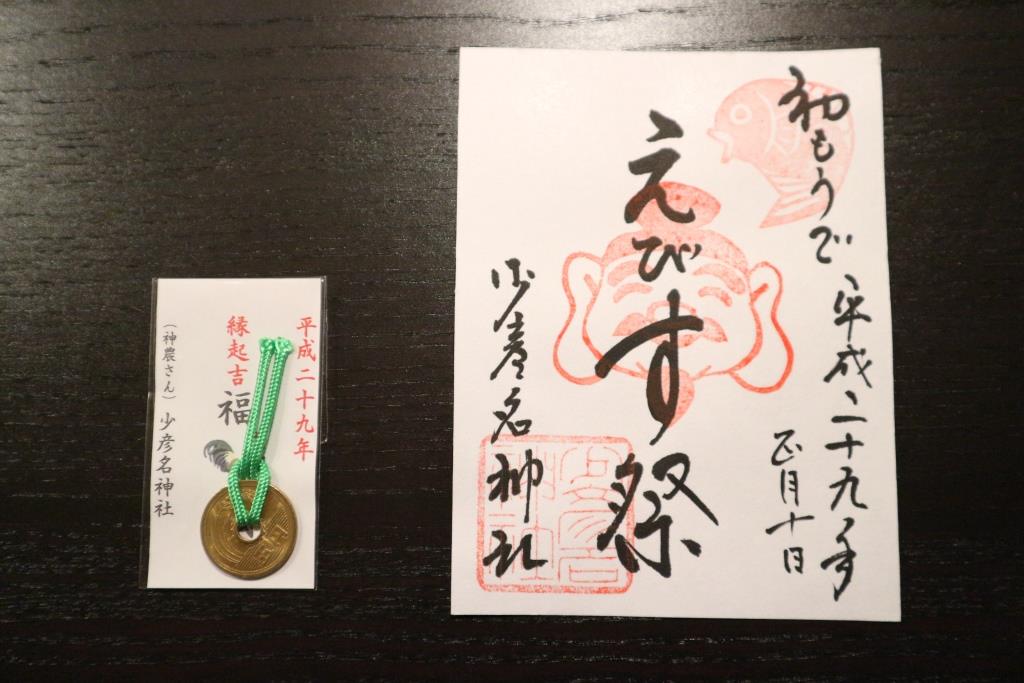 平成二十九年
縁起吉
福
(神農さん) 少彦名神社
初もうで 平成二十九年
正月十日
えびす祭
少彦名神社